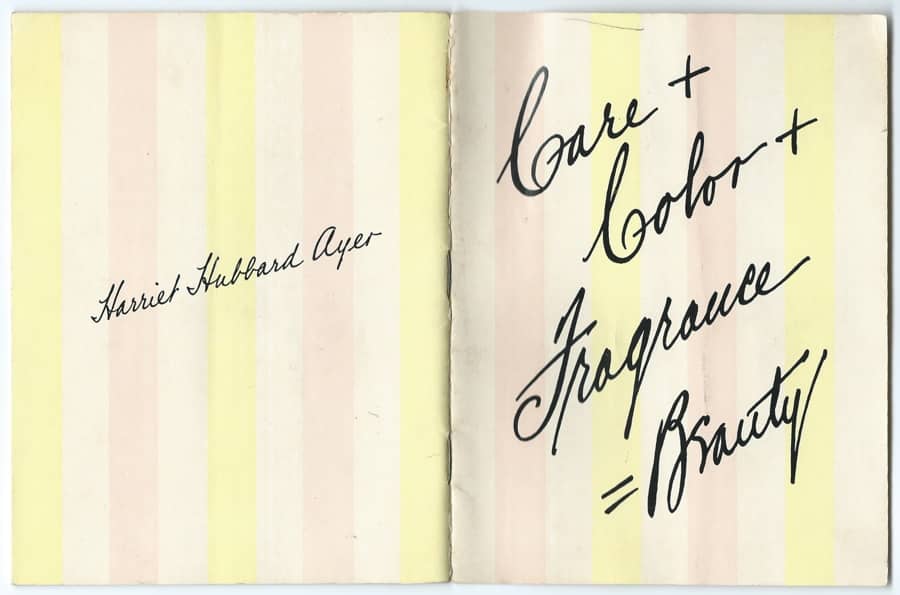 Harriet Hubbard Ayer
Care +
Color +
Fragrance
= Beauty